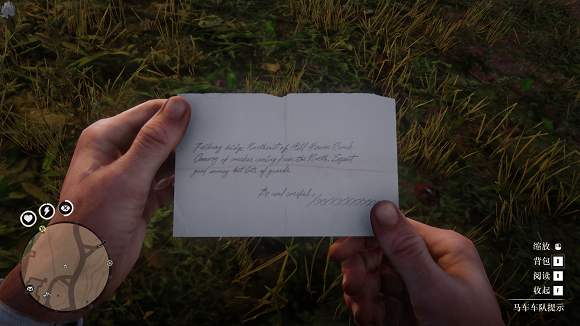 Railway bridge Northeast of Hill Haven Ranch.
Convoy of coaches coming from the North. Expect
good money but lots of guards.
Be real careful.
缩放
背包
阅读
收起
马车车队提示